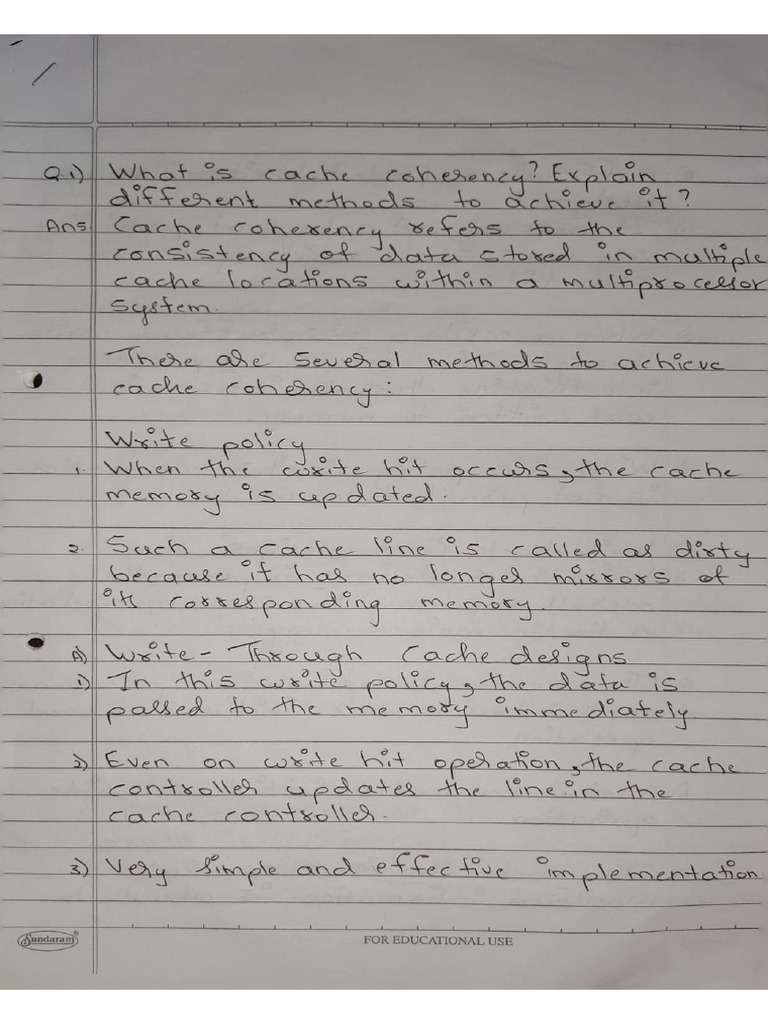 Q.1) What is cache coherency? Explain
different methods to achieve it?
Ans Cache coherency refers to the
consistency of data stored in multiple
cache locations within a multiprocessor
system.
There are several methods to achieve
cache coherency:
Write policy
1. When the write hit occurs, the cache
memory is updated.
2. Such a cache line is called as dirty
because it has no longer mirrors of
its corresponding memory.
A) Write-Through Cache designs
1) In this write policy, the data is
passed to the memory immediately
2) Even on write hit operation, the cache
controller updates the line in the
cache controller.
3) Very simple and effective implementation
Sundaram® FOR EDUCATIONAL USE